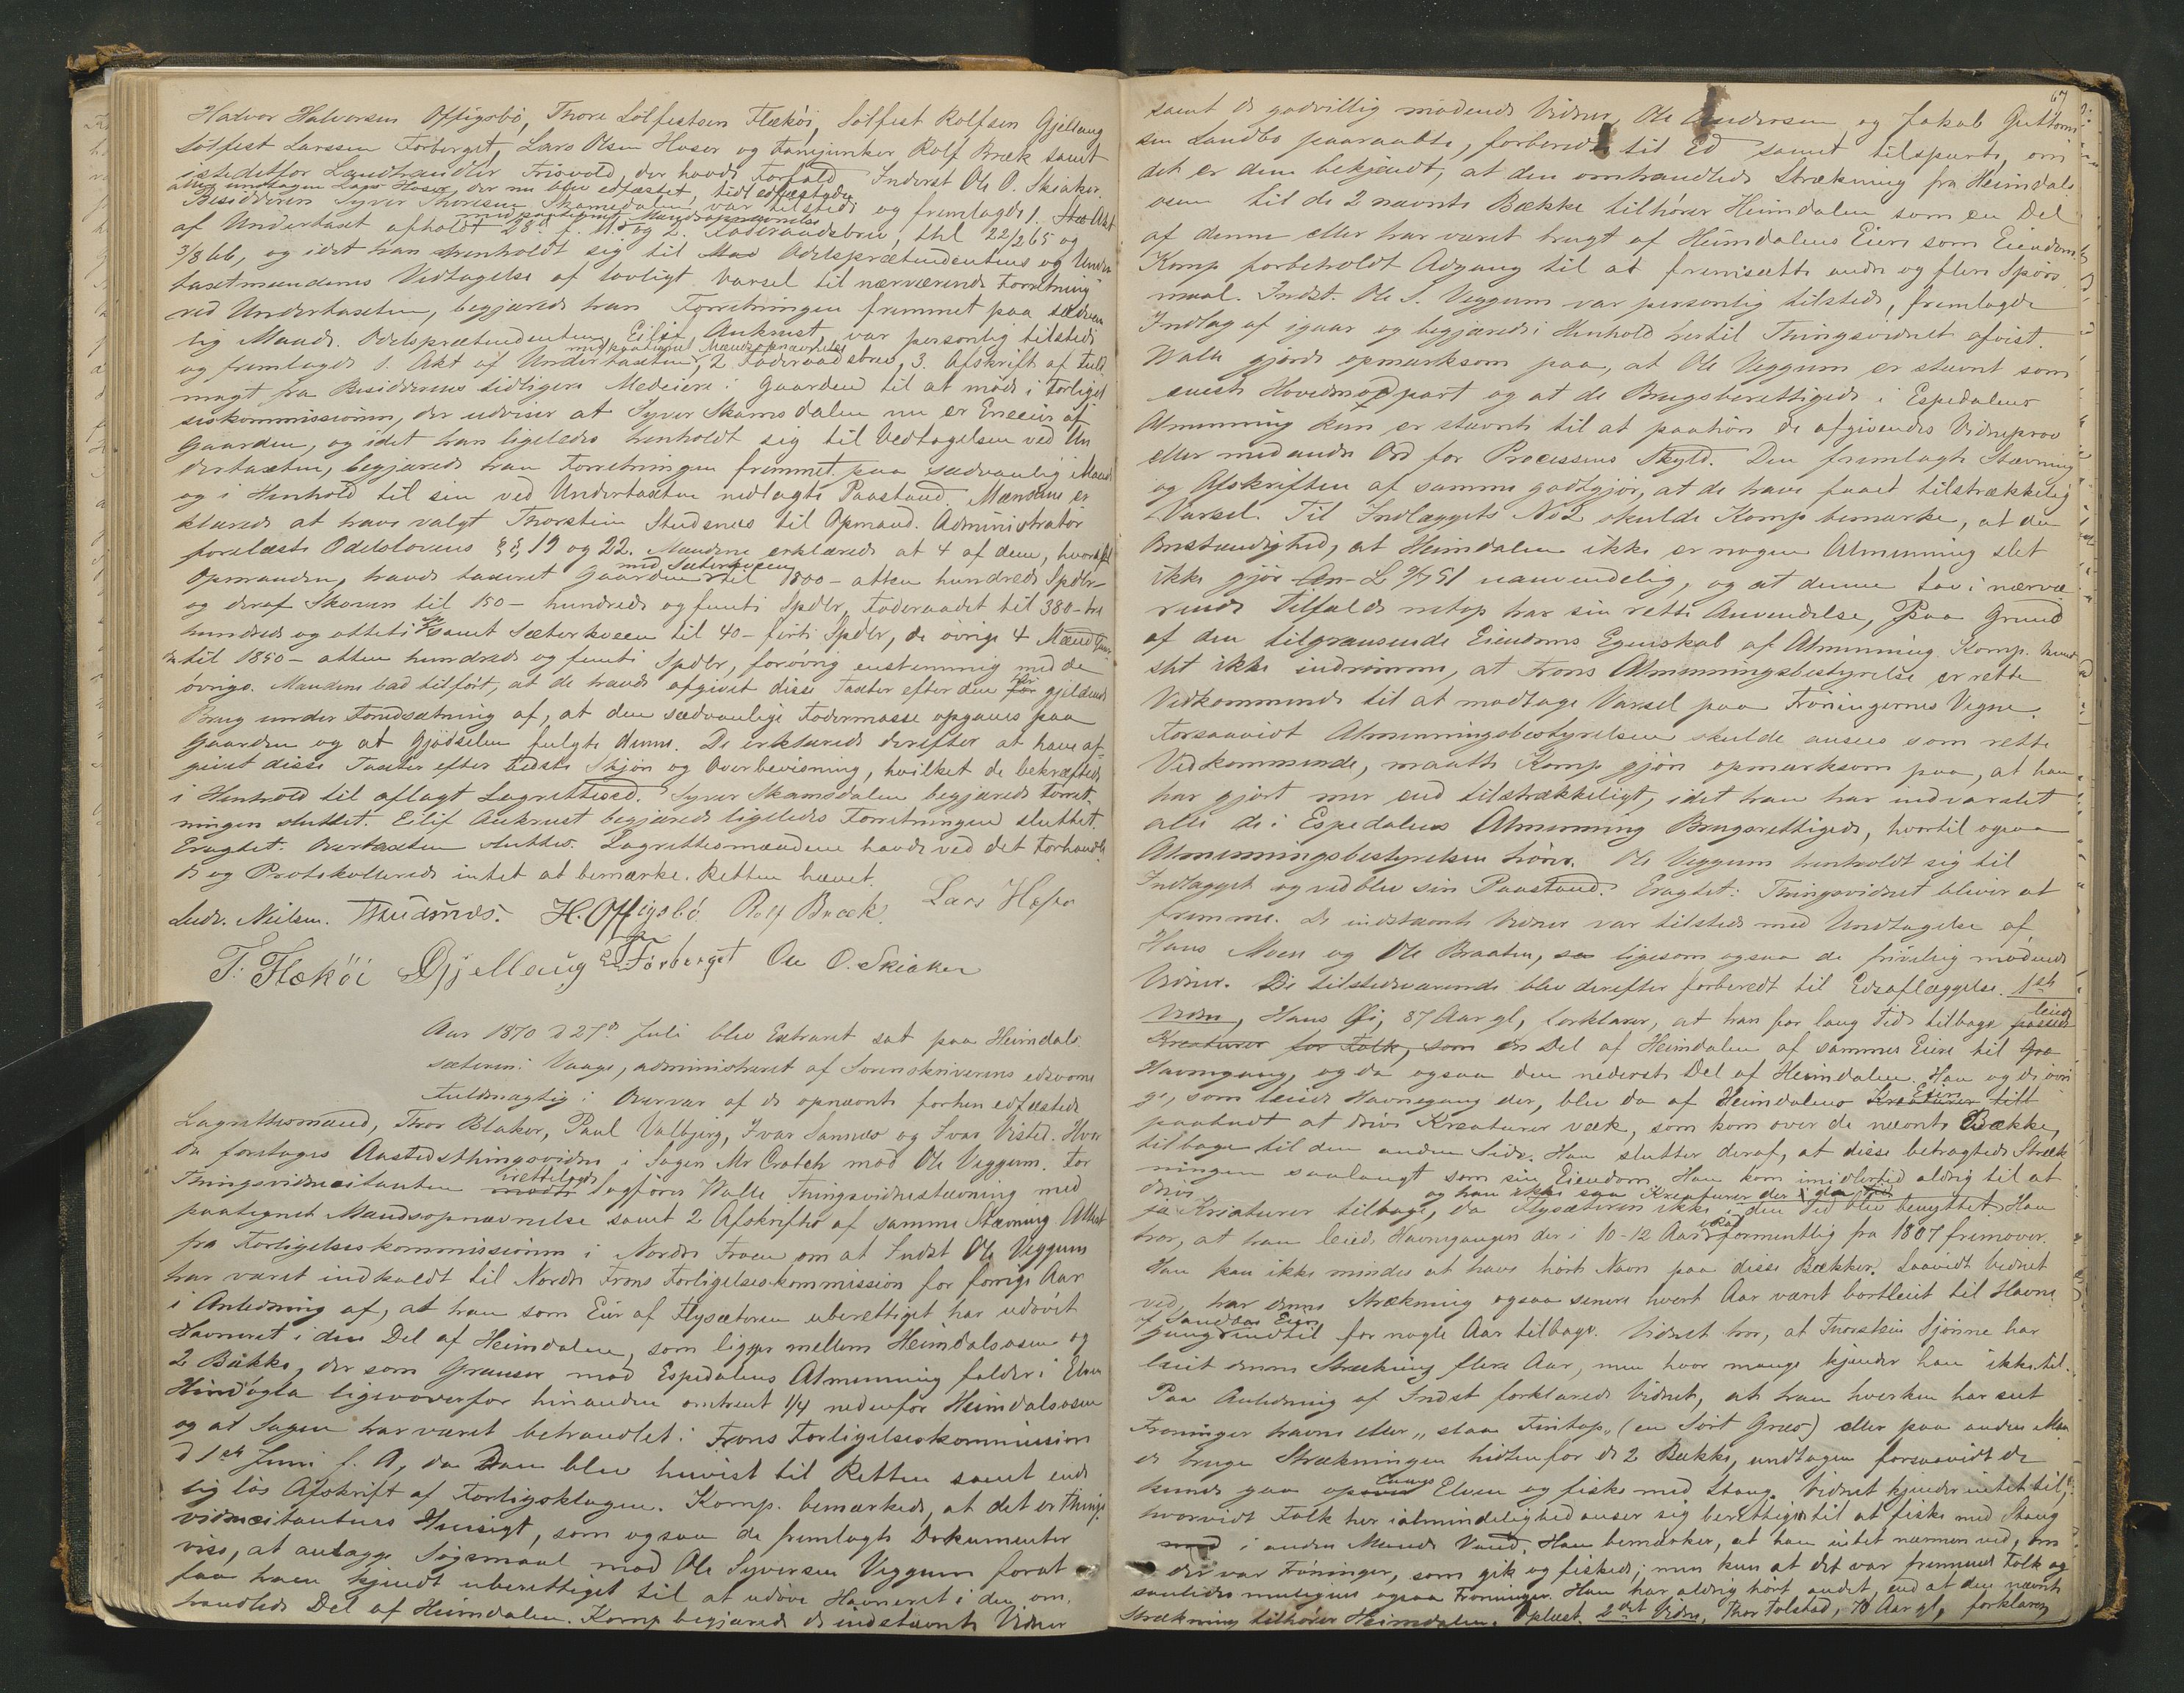 Halvor Halvorsen Offigsbö, Thore Sølfestsen Flækøi, Sølfest Rolfsen Gjellaug
Sølfest Larssen Förberget, Lars Olsen Hoser og Fanejunker Rolf Bræk samt
istedetfor Landhandler Frisvold, der havde Forfald Inderst Ole O. Skiaker.
alle undtagen Lars Hoser, der nu blev edfæstet, tidl edfæstede
Besidderen Syver Thoresen Skamsdalen var tilstede og fremlagde 1. Akt
med paategnet Mandsopnævnelse
af Undertaxt afholdt 28d f. M. og 2. Föderaadsbrev, thl 22/2 65 og
3/8 66, og idet han henholdt sig til Odelsprætendentens og Under
taxtmændenes Vedtagelse af lovligt Varsel til nærværende Forretning
ved Undertaxten, begjærede han Forretningen fremmet paa sædvan
lig Maade. Odelsprætendenten Eilif Aukrust var personlig tilstede
med paategnet Mandsopnævnelse
og fremlagde 1. Akt af Undertaxten, 2 Föderaadsbrev, 3. Afskrift af Fuld
magt fra Besidderens tidligere Medeiere i Gaarden til at møde i Forligel
seskommissionen, der udviser at Syver Skamsdalen nu er Eneeier af
Gaarden, og idet han ligeledes henholdt sig til Vedtagelsen ved Un
dertaxten, begjærede han Forretningen fremmet paa sædvanlig Maade
og i Henhold til sin ved Undertaxten nedlagte Paastand. Mændene er
klærede at have valgt Thorstein Studsnes til Opmand. Administrator
forelæste Odelslovens §§ 19 og 22. Mændene erklærede at 4 af dem, hvoriblt
med Sæterkveen
Opmanden, havde taxeret Gaarden til 1800 - atten hundrede Spdlr
og deraf Skoven til 150 - hundrede og femti Spdlr, Föderaadet til 380 - tre
hundrede og otteti samt Sæterkveen til 40 - firti Spdlr, de övrige 4 Mænd Gaar
den til 1850 - atten hundrede og femti Spdlr, forövrig enstemmig med de
övrige. Mændene bad tilfört, at de havde afgivet disse Taxter efter den her gjældende
Brug under Forudsætning af, at den sædvanlige Fodermasse opgaves paa
Gaarden og at Gjödselen fulgte denne. De erklærede derefter at have af-
givet disse Taxter efter bedste Skjön og Overbevisning, hvilket de bekræftede
i Henhold til aflagt Lagretteseed. Syver Skamsdalen begjærede Forret-
ningen sluttet. Eilif Aukrust begjærede ligeledes Forretningen sluttet.
Eragtet: Overtaxten sluttes. Lagrettesmændene havde ved det Forhandle
de og Protokollerede intet at bemærke. Retten hævet.
Ludv. Neilsen. TStudsnes. H. Offigsbö Rolf Bræk. Lars Hosør
T. Flækøi Gjellaug Förberget Ole O. Skiaker
Aar 1870 d 27d Juli blev Extraret sat paa Heimdals
sæteren i Vaage, administreret af Sorenskriverens edsvorne
Fuldmægtig i Overvær af de opnævnte forhen edfæstede
Lagrettesmænd, Thor Blaker, Paul Valbjerg, Ivar Sannæs og Ivar Visted. Hvor
da foretages Aastedsthingsvidne i Sagen Mr Crotch mod Ole Veggum. For
irettelagde
Thingsvidnecitanten mødte Sagförer Walle, Thingsvidnestævning med
paategnet Mandsopnævnelse samt 2 Afskrifter af samme Stævning Attest
fra Forligelseskommissionen i Nordre Froen om at Indst Ole Veggum
har været indkaldt til Nordre Frons Forligelseskommission for forrige Aar
i Anledning af, at han som Eier af Flysæteren uberettiget har udövet
Havneret i den Del af Heimdalen, som ligger mellem Heimdalsosen og
2 Bække, der som Grænser mod Espedalens Almenning falder i Elven
Hinögla ligeoverfor hinanden omtrent 1/4 nedenfor Heimdalsosen
og at Sagen har været behandlet i Frons Forligelseskommission
d 1ste Juni f. A, da den blev henvist til Retten samt ende
lig lös Afskrift af Forligsklagen. Komp. bemærkede, at det er Things
vidnecitantens Hensigt, som ogsaa de fremlagte Dokumenter
vise, at anlægge Sögsmaal mod Ole Syversen Veggum forat
faa ham kjendt uberettiget til at udöve Havneret i den om-
handlede Del af Heimdalen. Komp begjærede de indstævnte Vidner
67
samt de godvillig mödende Vidner, Ole Andersen og Jakob Guttorm
sen Sandbo paaraabte, forberedt til Ed samt tilspurte, om
det er dem bekjendt, at den omhandlede Strækning fra Heimdals
osen til de 2 nævnte Bække tilhörer Heimdalen som en Del
af denne eller har været brugt af Heimdalens Eiere som Eiendom.
Komp forbeholdt Adgang til at fremsætte andre og flere Spörs
maal. Indst. Ole S. Veggum var personlig tilstede, fremlagde
Indlæg af igaar og begjærede i Henhold hertil Thingsvidnet afvist.
Walle gjorde opmærksom paa, at Ole Veggum er stævnt som
eneste Hovedmodpart og at de Brugsberettigede i Espedalens
Almenning kun er stævnte til at paahöre de afgivendes Vidneprov
eller med andre Ord for Processens Skyld. Den fremlagte Stævning
og Afskriften af samme godtgjör, at de have faaet tilstrækkelig
Varsel. Til Indlæggets No 2 skulde Komp bemærke, at den
Omstændighed, at Heimdalen ikke er nogen Almenning slet
ikke gjör L 9/51 uanvendelig, og at denne Lov i nærvæ
rende Tilfælde netop har sin rette Anvendelse, Paa Grund
af den tilgrænsende Eiendoms Egenskab af Almenning. Komp. kunde
slet ikke indrömme, at Frons Almenningsbestyrelse er rette
Vedkommende til at modtage Varsel paa Fröningernes Vegne.
Forsaavidt Almenningsbestyrelsen skulde ansees som rette
Vedkommende, maatte Komp gjöre opmærksom paa, at han
har gjort mer end tilstrækkeligt, idet han har indvarslet
alle de i Espedalens Almenning Brugsrettigede, hvortil ogsaa
Almenningsbestyrelsen hörer. Ole Veggum henholdt sig til
Indlægget og vedblev sin Paastand. Eragtet: Thingsvidnet bliver at
fremme. De indstævnte Vidner var tilstede med Undtagelse af
Hans Moen og Ole Braaten, ligesom ogsaa de frivillig mødende
Vidner. De tilstedeværende blev derefter forberedt til Edsaflæggelse. 1ste
leiede
Vidne, Hans Øi, 87 Aar gl, forklarer, at han for lang Tid tilbage passede
Kreaturer for Folk, som en Del af Heimdalen af sammes Eiere til
Havnegang, og da ogsaa den nederste Del af Heimdalen. Han og de övri
Eiere
ge, som leiede Havnegang der, blev da af Heimdalens Kreaturer till
paabudt at drive Kreaturer væk, som kom over de nævnte Bække,
tilbage til den anden Side. Han slutter deraf, at disse betragtede Stræk
ningen saalangt som sin Eiendom. Han kom imidlertid aldrig til at
drive og han ikke saa Kreaturer der i den Tid
ja Kreaturer tilbage, da Flysæteren ikke i den Tid blev benyttet. Han
tror, at han leiede Havnegangen der i 10-12 Aar formentlig fra 1807 fremover.
Han kan ikke mindes at have hört Navn paa disse Bækker. Saavidt Vidnet
ved, har denne Strækning ogsaa senere hvert Aar været bortleiet til Havne
af Sandbos Eiere
gang indtil for nogle Aar tilbage. Vidnet tror, at Thorstein Sjönne har
leiet denne Strækning flere Aar, men hvor mange kjender han ikke til.
Paa Anledning af Indst forklarede Vidnet, at han hverken har seet
Fröninger havne eller "slaa Fintop" (en Sort Græs) eller paa anden Maa
de bruge Strækningen hidtenfor de 2 Bække, undtagen forsaavidt de
langs
kunde gaa Elven og fiske med Stang. Vidnet kjender intet til,
hvorvidt Folk her i almindelighed anser sig berettiget til at fiske med Stang
med i anden Mands Vand. Han bemærker, at han intet nærmere ved, om
der var Fröninger, som gik og fiskede; men kun at det var fremmede Folk og
saaledes muligens ogsaa Fröninger. Han har aldrig hört andet, end at den nævnte
Strækning tilhörer Heimdalen. Oplæst. 2det Vidne, Thor Tolstad, 70 Aar gl, forklarer